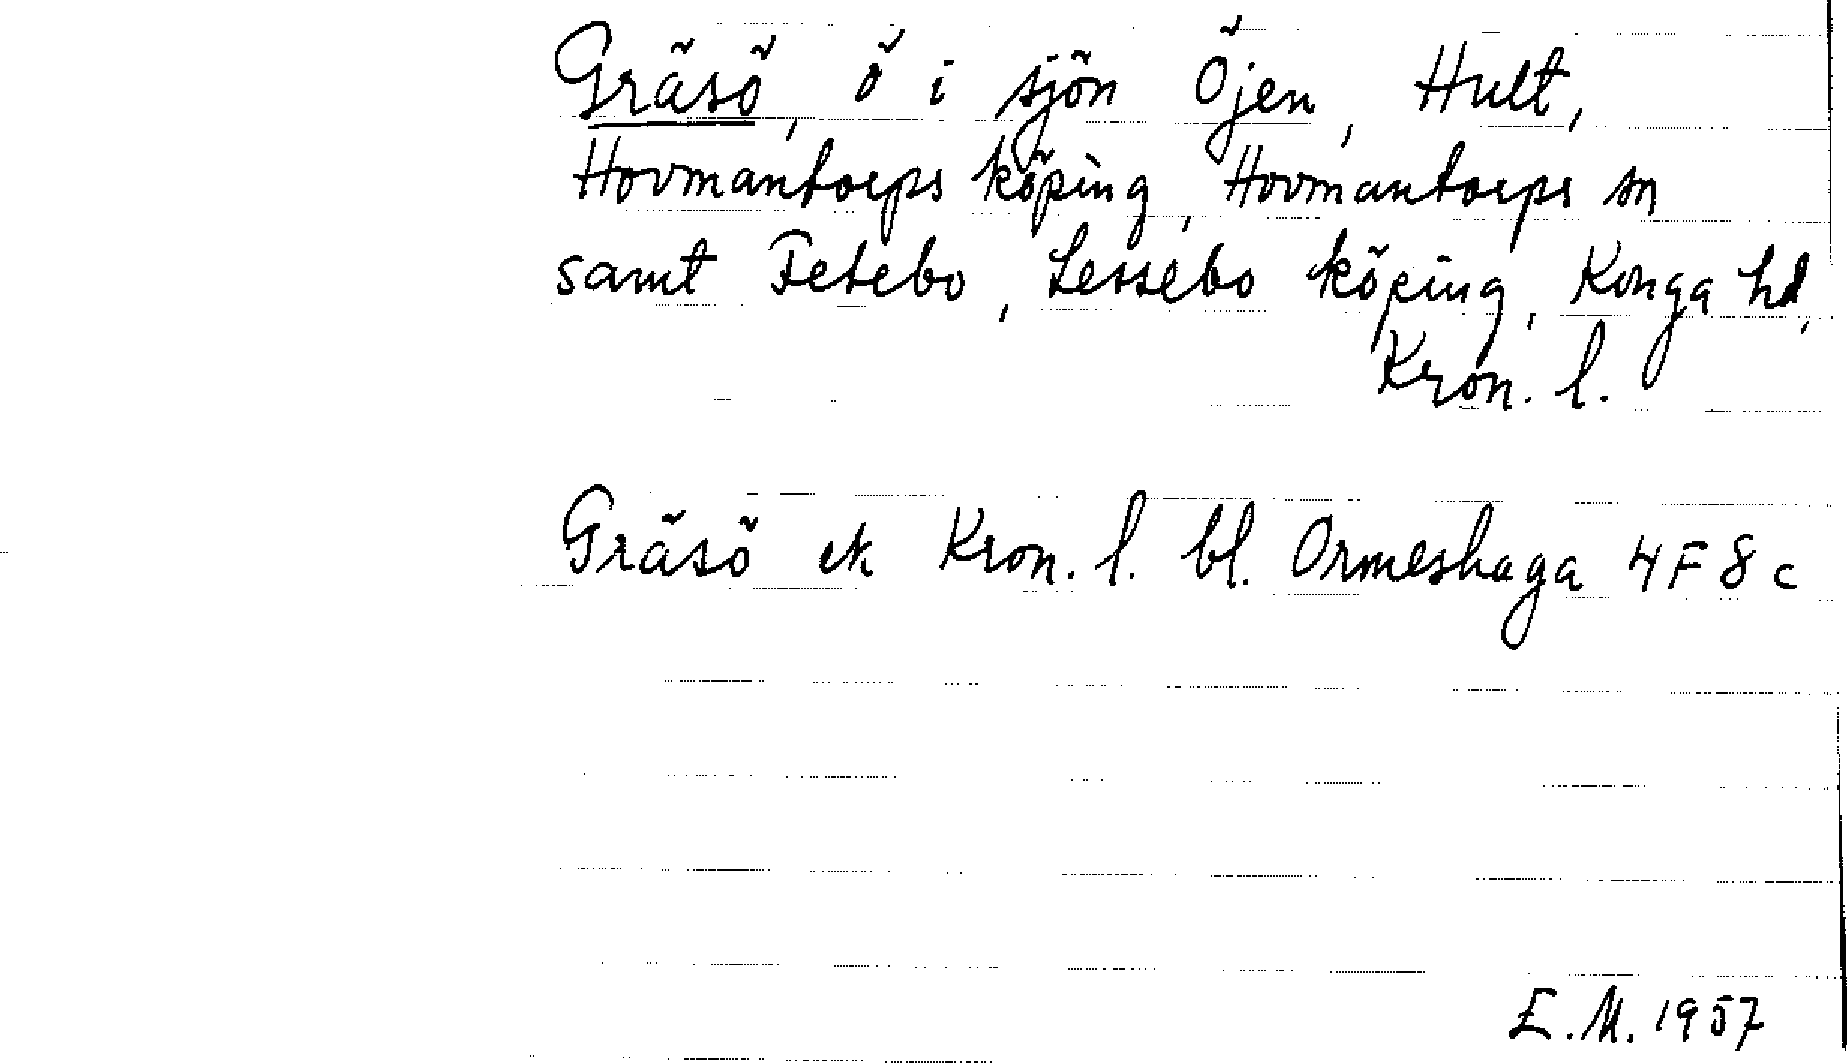 Gräsö, ö i sjön Öjen, Hult,
Hovmantorps köping, Hovmantorps sn
samt Fetebo, Lessebo köping, Konga hd,
Kron. l.
Gräsö ek Kron. l. bl. Ormeshaga 4F8c
E.M. 1957